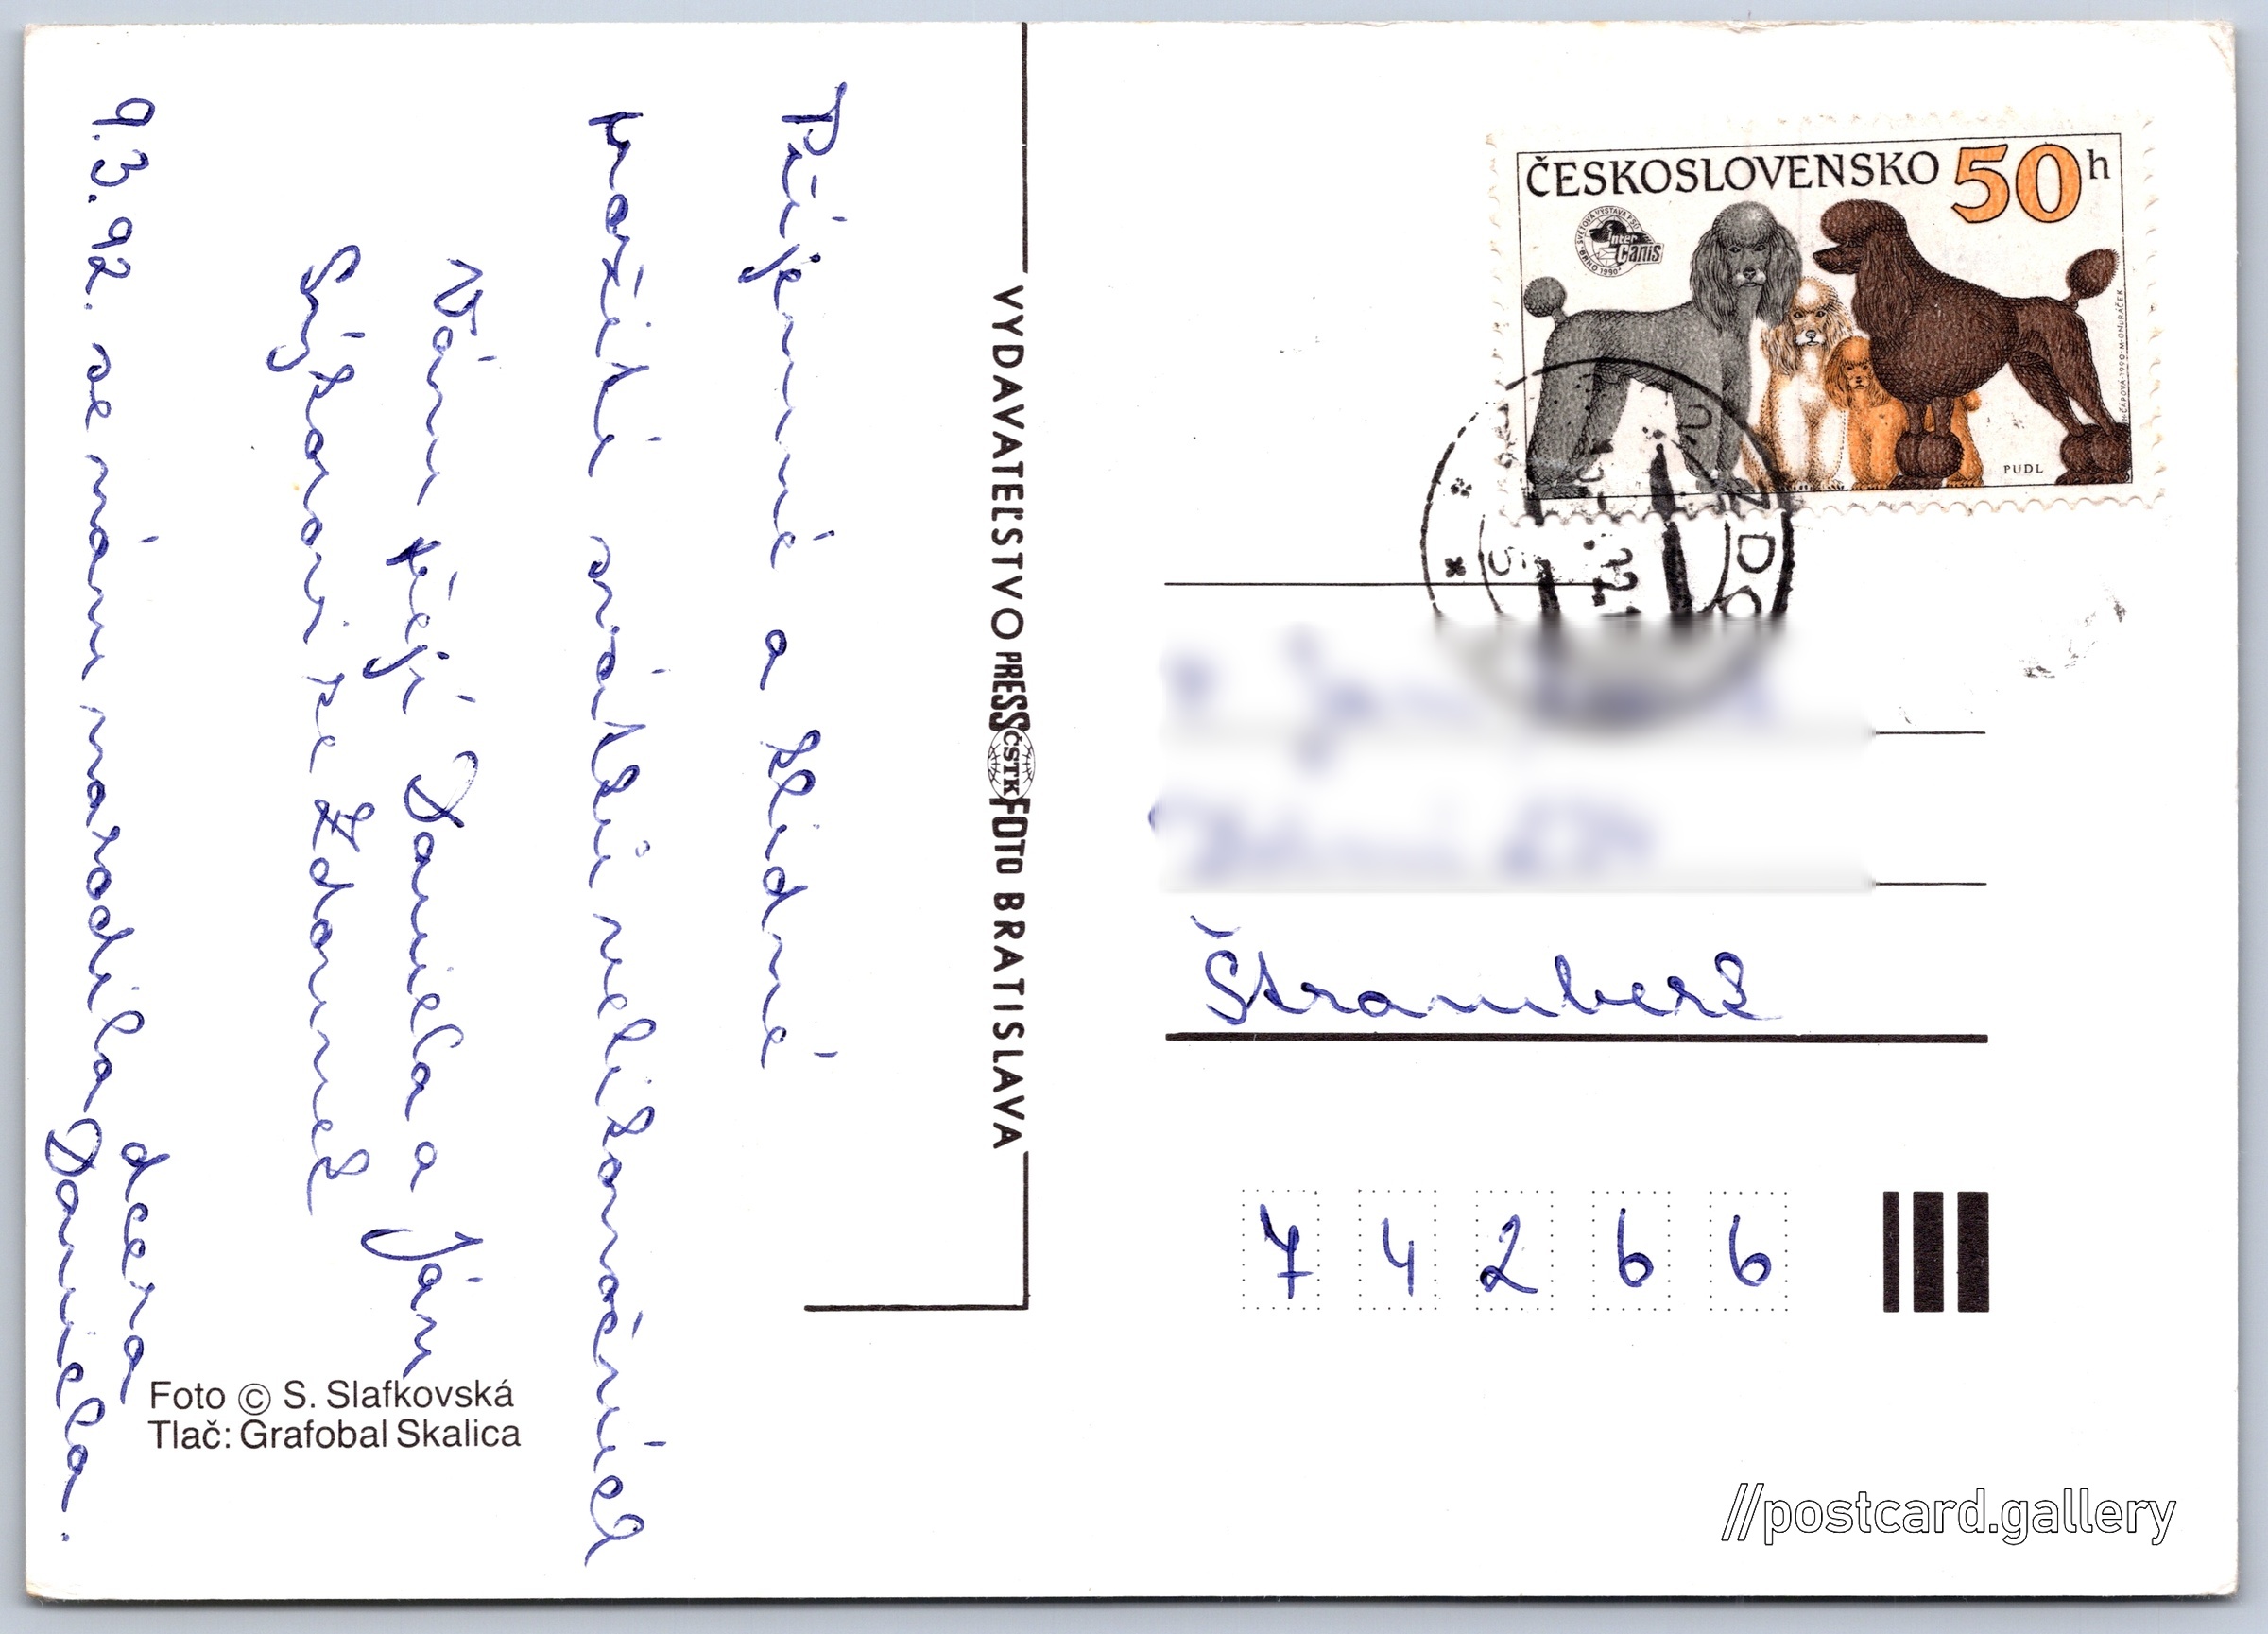 Příjemné a klidné
prožití svátků velikonočních
Vám přejí Daniela a Ján
Sýkorovi ze Ždánic
9.3.92. se nám narodila dcera
Daniela.
Foto © S. Slafkovská
Tlač: Grafobal Skalica
VYDAVATEĽSTVO PRESSFOTO BRATISLAVA
ČSTK
ČESKOSLOVENSKO 50h
SVĚTOVÁ VÝSTAVA PSŮ
Inter Canis
BRNO 1990
PUDL
Štramberk
7 4 2 6 6
//postcard.gallery